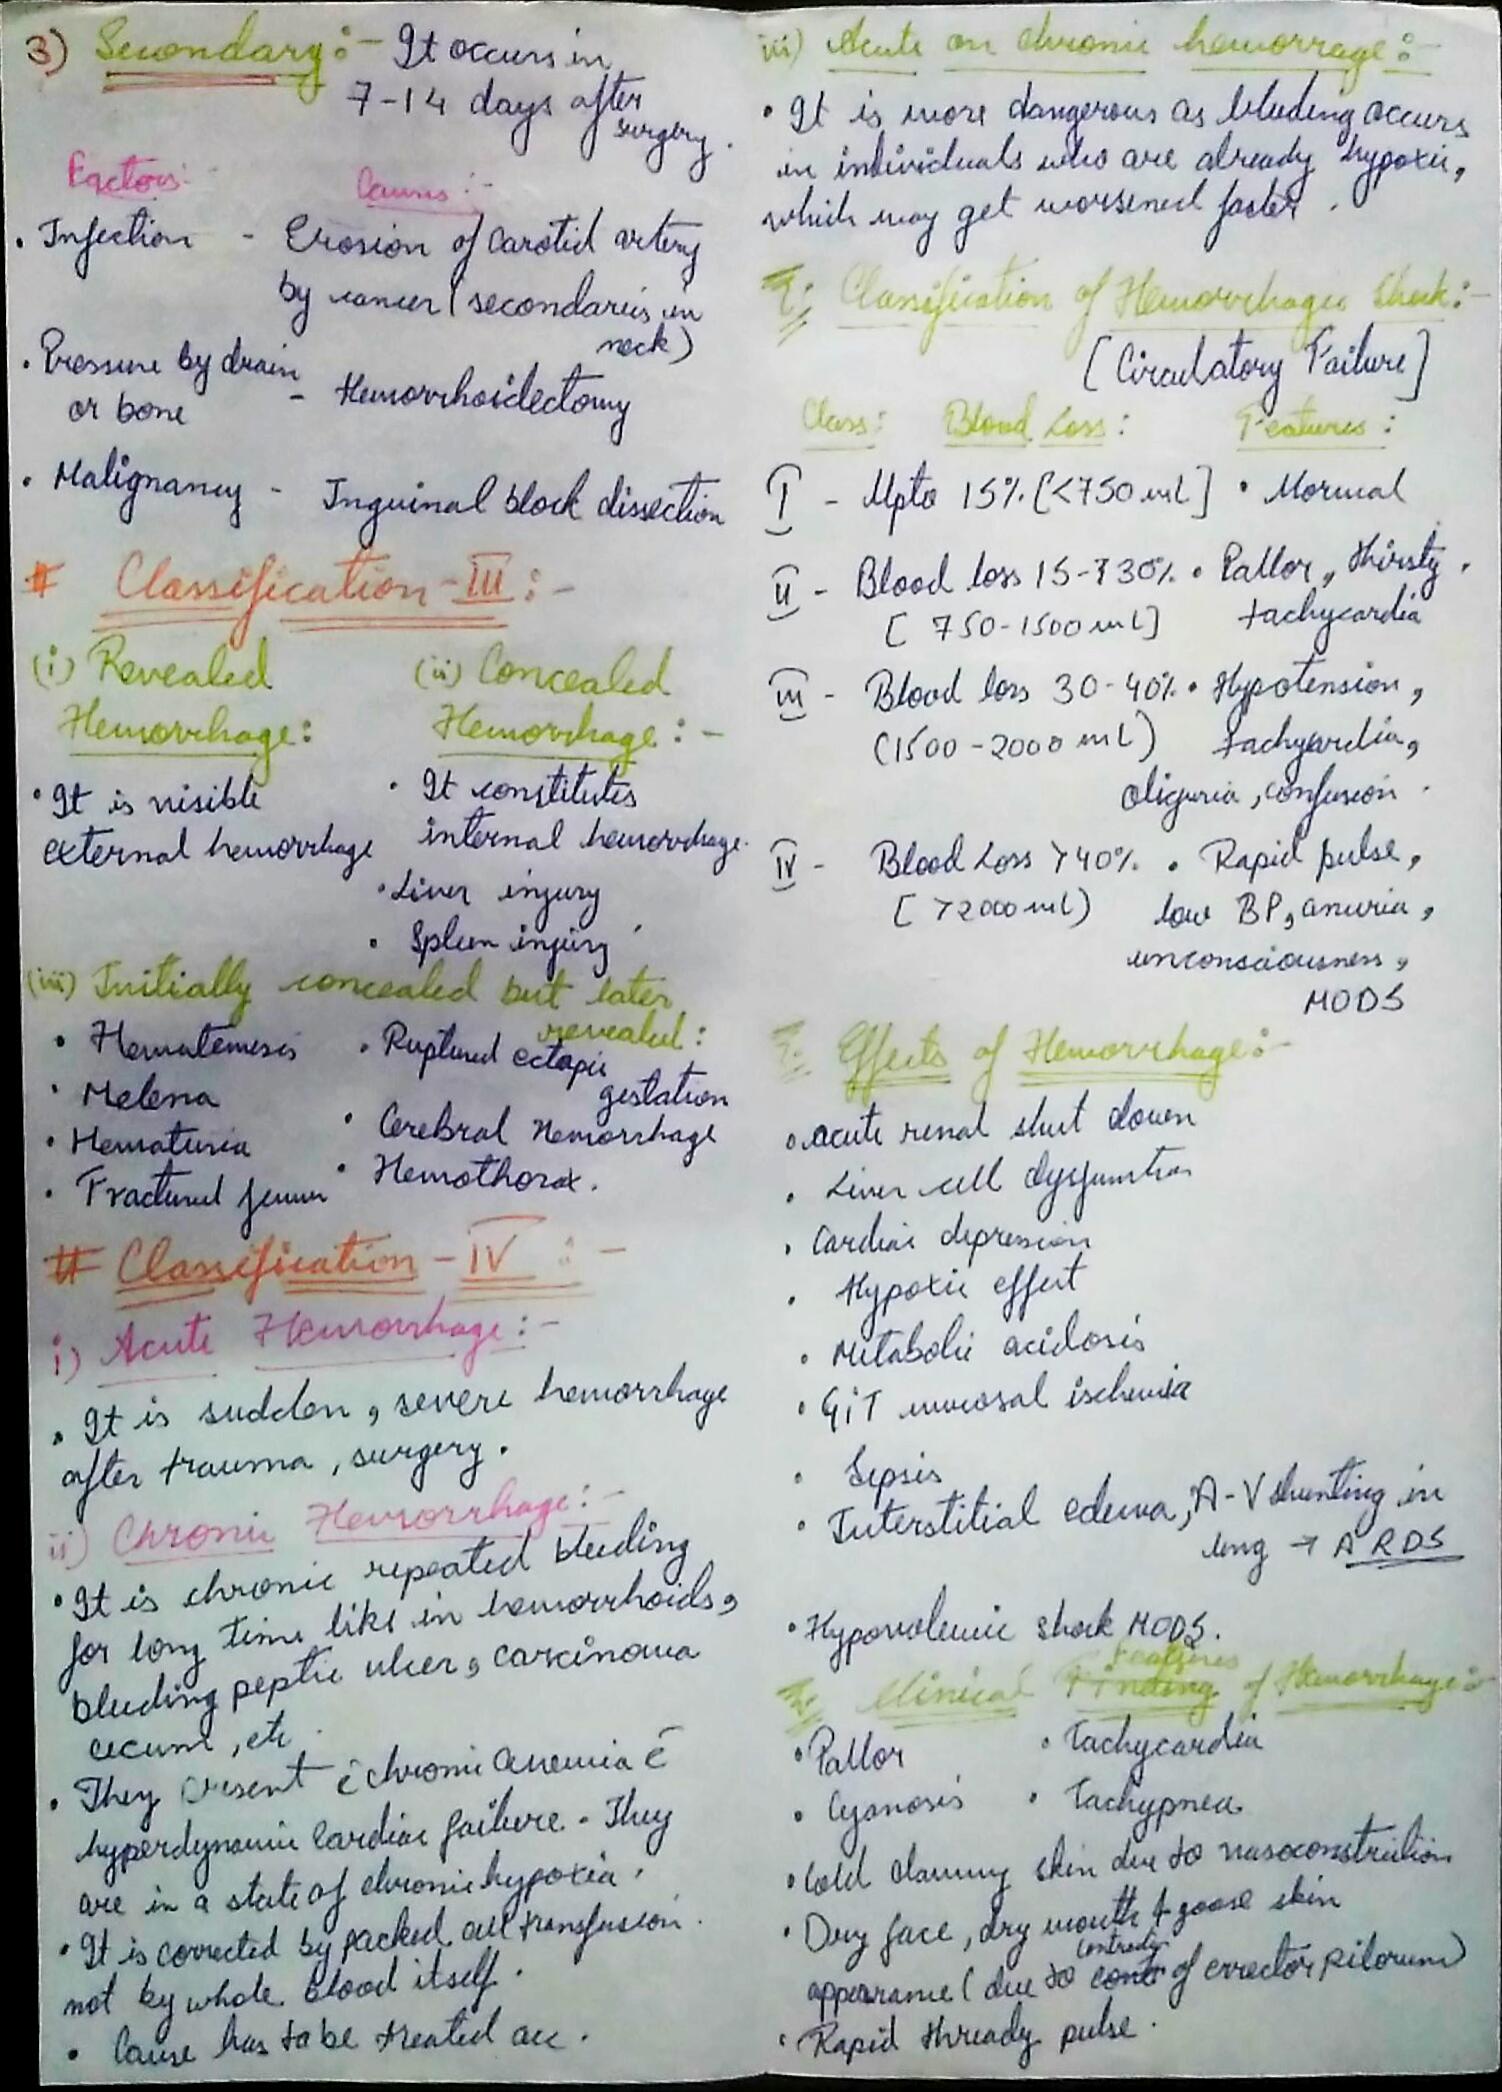 3) Secondary:- It occurs in
7-14 days after
surgery.
Factors:-
Causes:-
• Infection - Erosion of Carotid artery
by cancer (secondaries in
neck)
• Pressure by drain
or bone - Hemorrhoidectomy
• Malignancy - Inguinal block dissection
# Classification-III:-
(i) Revealed
Hemorrhage:
• It is visible
external hemorrhage
(ii) Concealed
Hemorrhage:-
• It constitutes
internal hemorrhage.
• Liver injury
• Spleen injury
(iii) Initially concealed but later
revealed:
• Hematemesis
• Melena
• Hematuria
• Fractured femur
• Ruptured ectopic
gestation
• Cerebral Hemorrhage
• Hemothorax.
# Classification-IV:-
i) Acute Hemorrhage:-
• It is sudden, severe hemorrhage
after trauma, surgery.
ii) Chronic Hemorrhage:-
• It is chronic repeated bleeding
for long time like in hemorrhoids,
bleeding peptic ulcer, carcinoma
cecum, etc.
• They present c̄ chronic anemia c̄
hyperdynamic cardiac failure. They
are in a state of chronic hypoxia.
• It is corrected by packed cell transfusion.
not by whole blood itself.
• Cause has to be treated acc.
iii) Acute on chronic hemorrage:-
• It is more dangerous as bleeding occurs
in individuals who are already hypoxic,
which may get worsened faster.
Classification of Hemorrhagic Shock:-
[Circulatory Failure]
Class: Blood Loss: Features:
I - Upto 15% [<750 mL] • Normal
II - Blood loss 15-30% • Pallor, thirsty,
[750-1500 mL] tachycardia
III - Blood loss 30-40% • Hypotension,
(1500-2000 mL) tachycardia,
oliguria, confusion.
IV - Blood Loss >40% • Rapid pulse,
[>2000 mL) low BP, anuria,
unconsciousness,
MODS
Effects of Hemorrhage:-
• Acute renal shut down
• Liver cell dysfunction
• Cardiac depression
• Hypoxic effect
• Metabolic acidosis
• GIT mucosal ischemia
• Sepsis
• Interstitial edema, A-V shunting in
lung → ARDS
• Hypovolemic shock MODS.
Features
Clinical Finding of Hemorrhage:-
• Pallor • Tachycardia
• Cyanosis • Tachypnea
• Cold clammy skin due to vasoconstriction
• Dry face, dry mouth & goose skin
appearance (due to of errector pilorum)
• Rapid thready pulse.